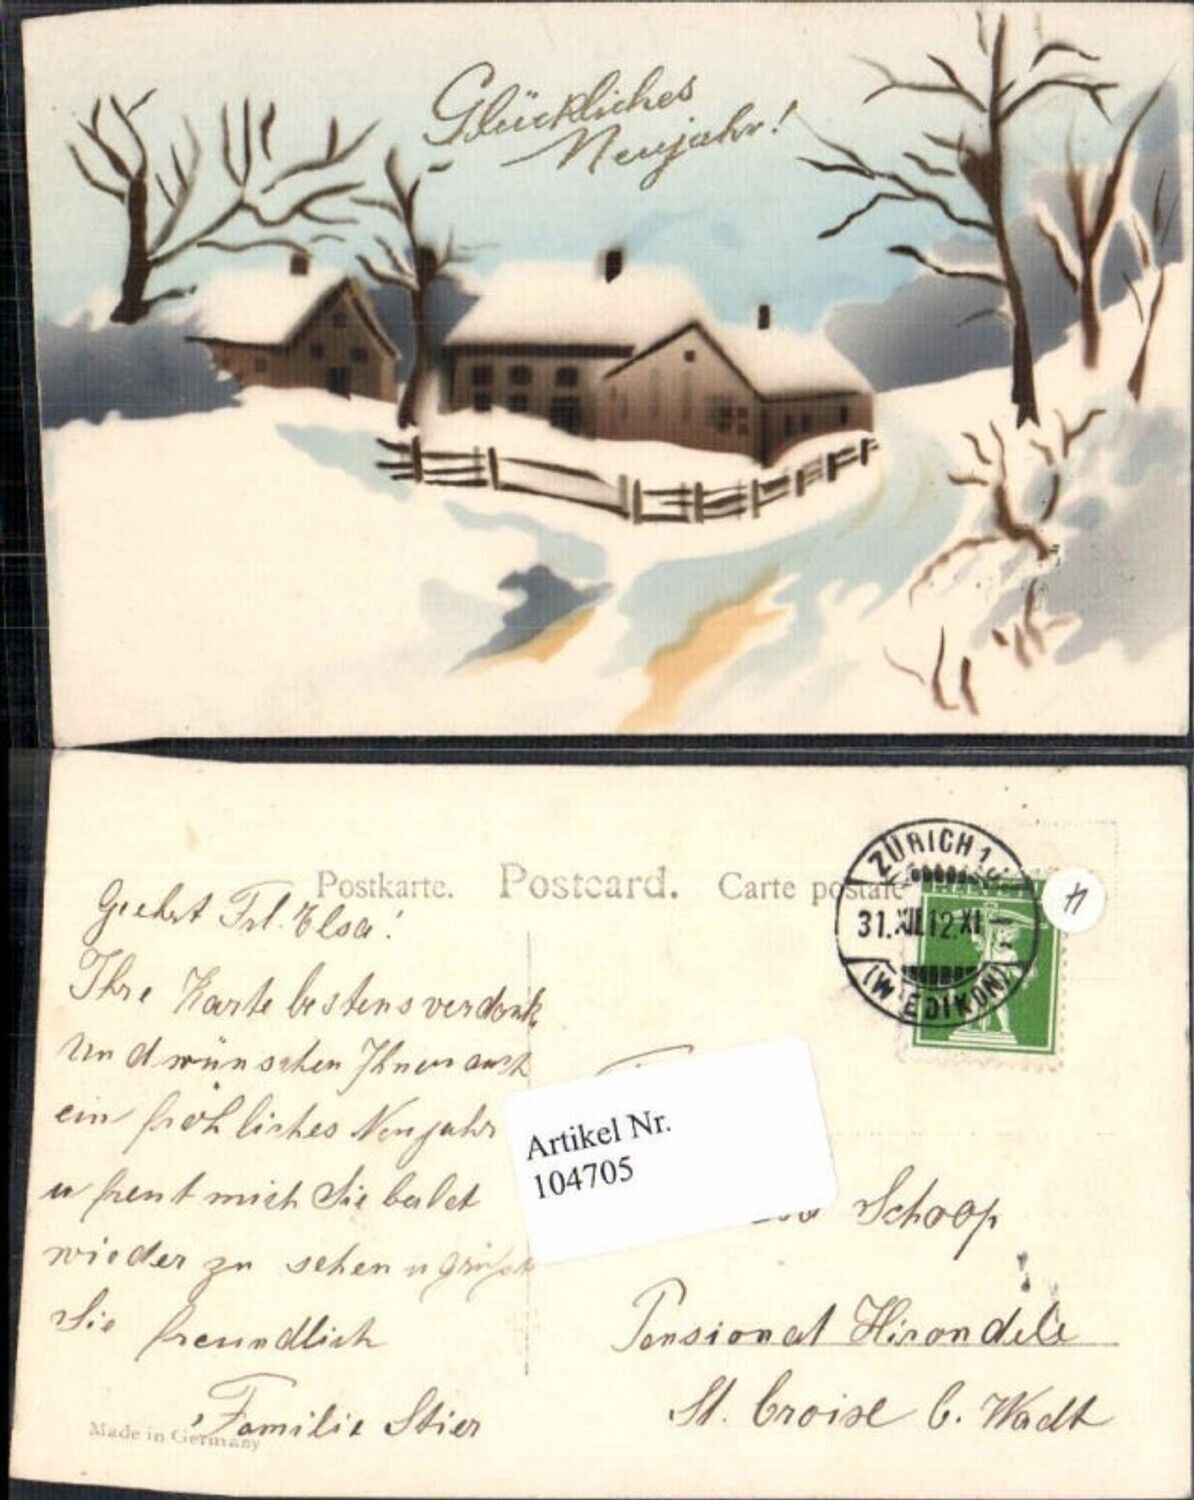 Glückliches
Neujahr!
Postkarte. Postcard. Carte postale
ZÜRICH 1
31.XII.12.XI
(WIEDIKON)
H
Geehrt Frl. Elsa!
Ihre Karte bestens verdankt
Und wünschen Ihnen auch
ein fröhliches Neujahr
u freut mich Sie balet
wieder zu sehen u grüsst
Sie freundlich
Familie Stier
Made in Germany
Artikel Nr.
104705
Schoop
Pensionat Hirondelle
St. Croise C. Wadt